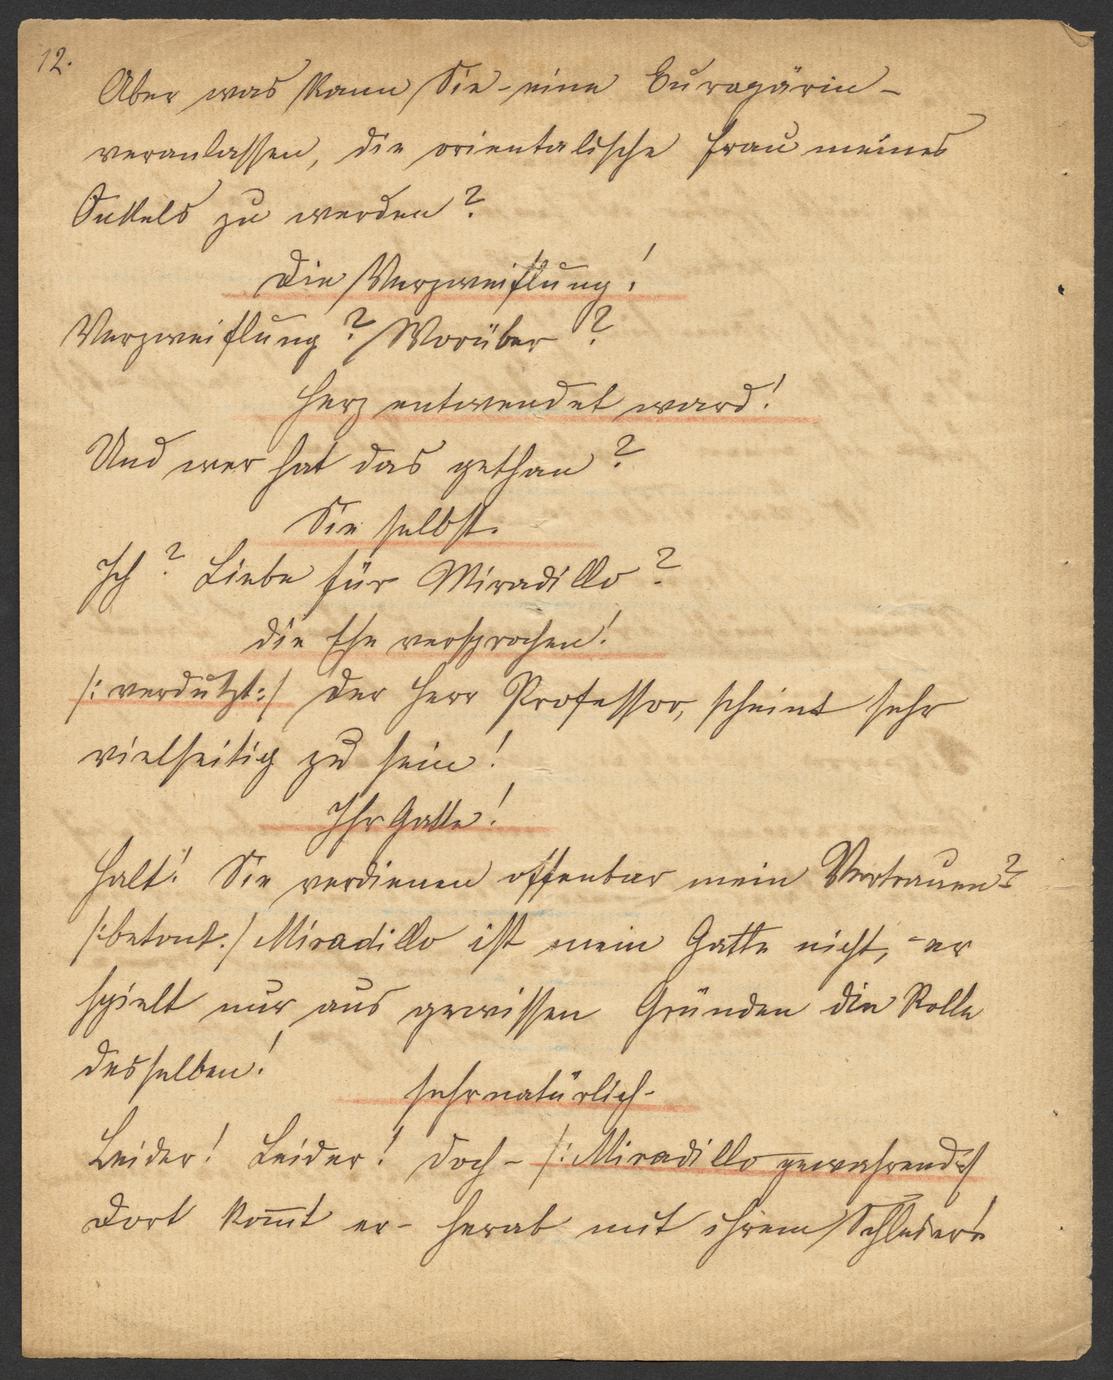 12.
Aber was kann Sie - eine Europäerin -
veranlassen, die orientalische Frau meines
Onkels zu werden?
Die Verzweiflung!
Verzweiflung? Worüber?
Herz entwendet ward!
Und wer hat das gethan?
Sie selbst.
Ich? Liebe für Miradillo?
die Ehe versprochen!
/: verdutzt :/ Der Herr Professor, scheint sehr
vielseitig zu sein!
Ihr Gatte!
Halt! Sie verdienen offenbar mein Vertrauen!
/: betont :/ Miradillo ist mein Gatte nicht, - er
spielt nur aus gewissen Gründen die Rolle
desselben!
sehr natürlich -
Leider! Leider! Doch - /: Miradillo gewahrend :/
Dort kom̅t er - herab mit ihrem